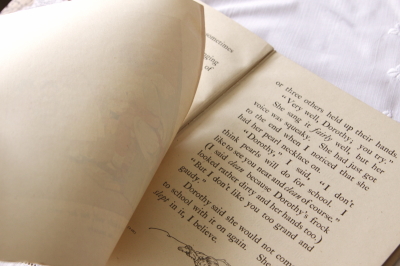 sometimes
nging
of
or three others held up their hands.
"Very well, Dorothy, you try."
She sang it fairly well, but her
voice was squeaky. She had just got
to the end when I noticed that she
had her pearl necklace on.
"Dorothy," I said, "I don't
think pearls will do for school. I
like to see you neat and clean of course."
(I said clean because Dorothy's frock
looked rather dirty and her hands too.)
"But I don't like you too grand and
gaudy."
Dorothy said she would not come
to school with it on again. She
slept in it, I believe.